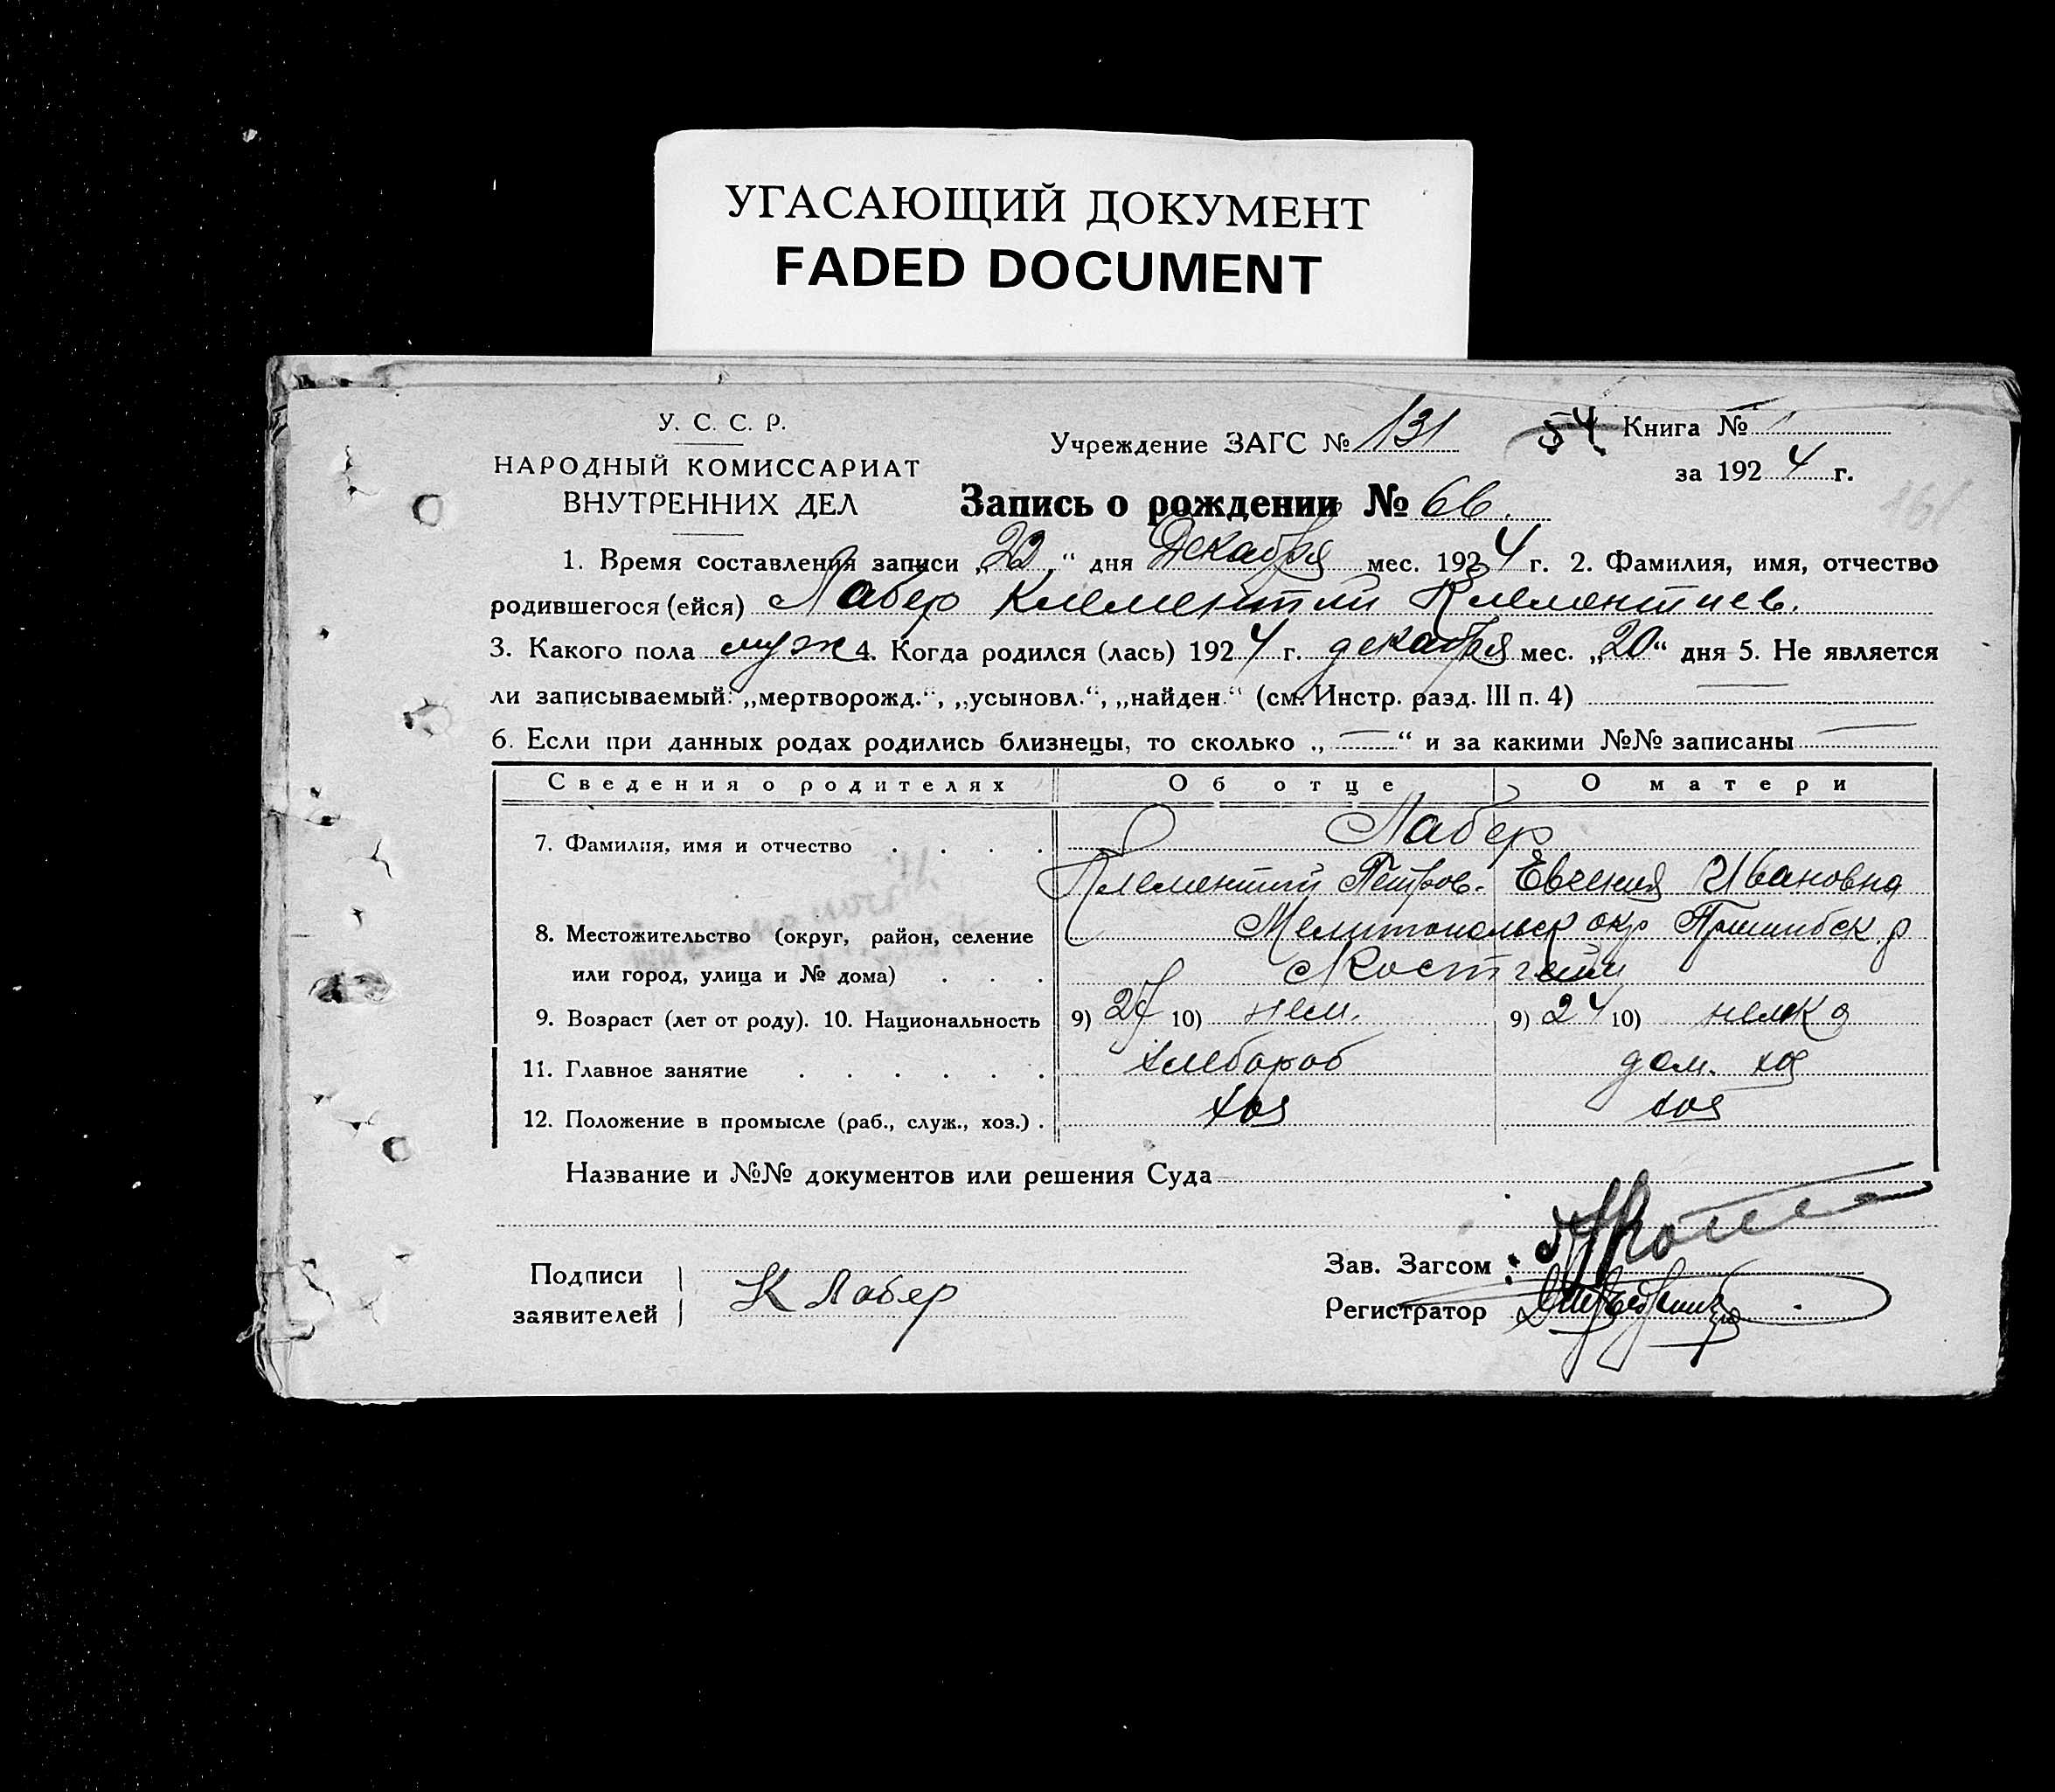 УГАСАЮЩИЙ ДОКУМЕНТ
FADED DOCUMENT
У. С. С. Р.
НАРОДНЫЙ КОМИССАРИАТ
ВНУТРЕННИХ ДЕЛ
Учреждение ЗАГС № 131
54 Книга №
за 1924 г.
Запись о рождении № 66.
1. Время составления записи „22“ дня Декабря мес. 1924 г. 2. Фамилия, имя, отчество
родившегося (ейся) Лабер Клементий Клементиев.
3. Какого пола муж 4. Когда родился (лась) 1924 г. декабря мес. „20“ дня 5. Не является
ли записываемый: „мертворожд.“, „усыновл.“, „найден.“ (см. Инстр. разд. III п. 4) —
6. Если при данных родах родились близнецы, то сколько „—“ и за какими №№ записаны —
Сведения о родителях Об отце О матери
7. Фамилия, имя и отчество . . . . Лабер
Клементий Петров. Евгения Ивановна
8. Местожительство (округ, район, селение Мелитопольск окр Пришибск. р
или город, улица и № дома) . . . Костгейм
9. Возраст (лет от роду). 10. Национальность 9) 27 10) нем. 9) 24 10) немка
11. Главное занятие . . . . . . хлебороб дом. хоз
12. Положение в промысле (раб., служ., хоз.) . хоз хоз
Название и №№ документов или решения Суда
Подписи
заявителей
К Лабер
Зав. Загсом
Регистратор